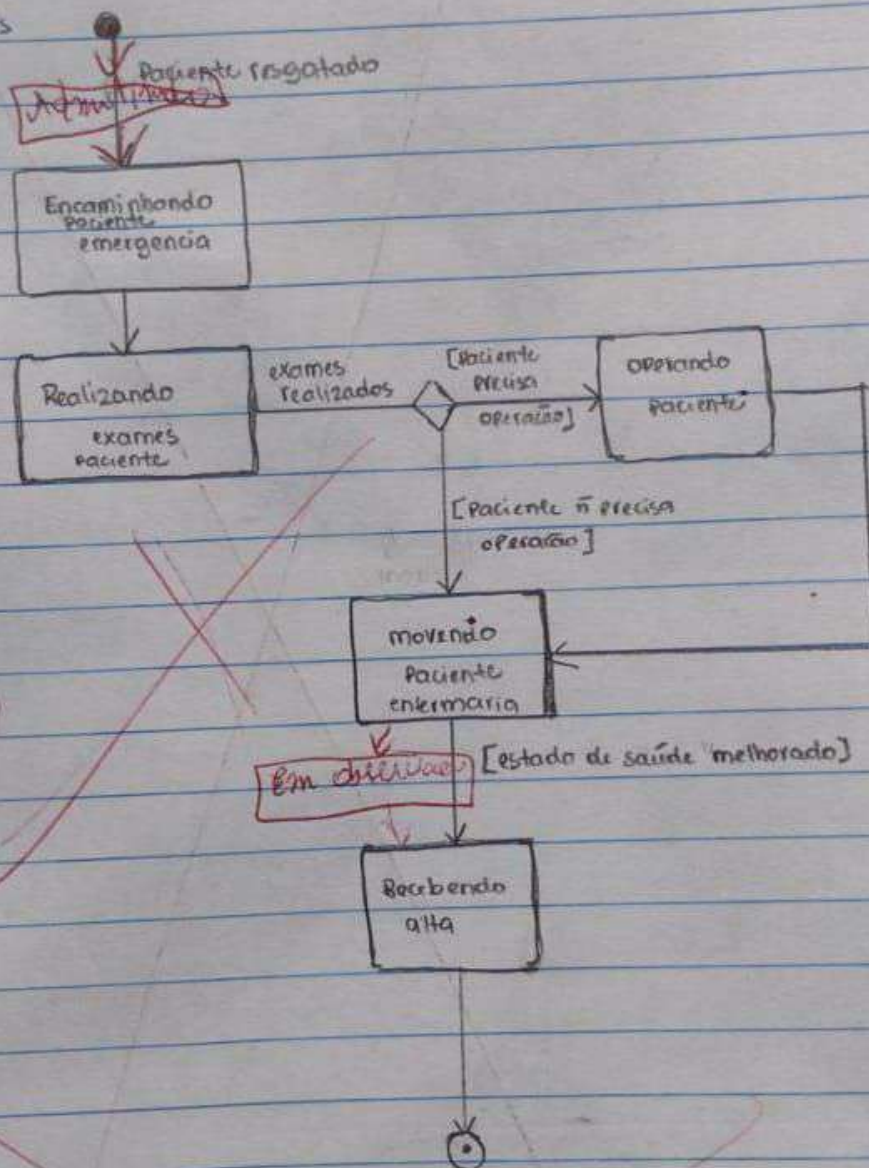 s
Paciente resgatado
Encaminhando
paciente
emergencia
Realizando
exames
paciente
exames
realizados
[Paciente
precisa
operação]
operando
paciente
[Paciente ñ precisa
operação]
movendo
Paciente
enfermaria
Em
[estado de saúde melhorado]
Recebendo
alta